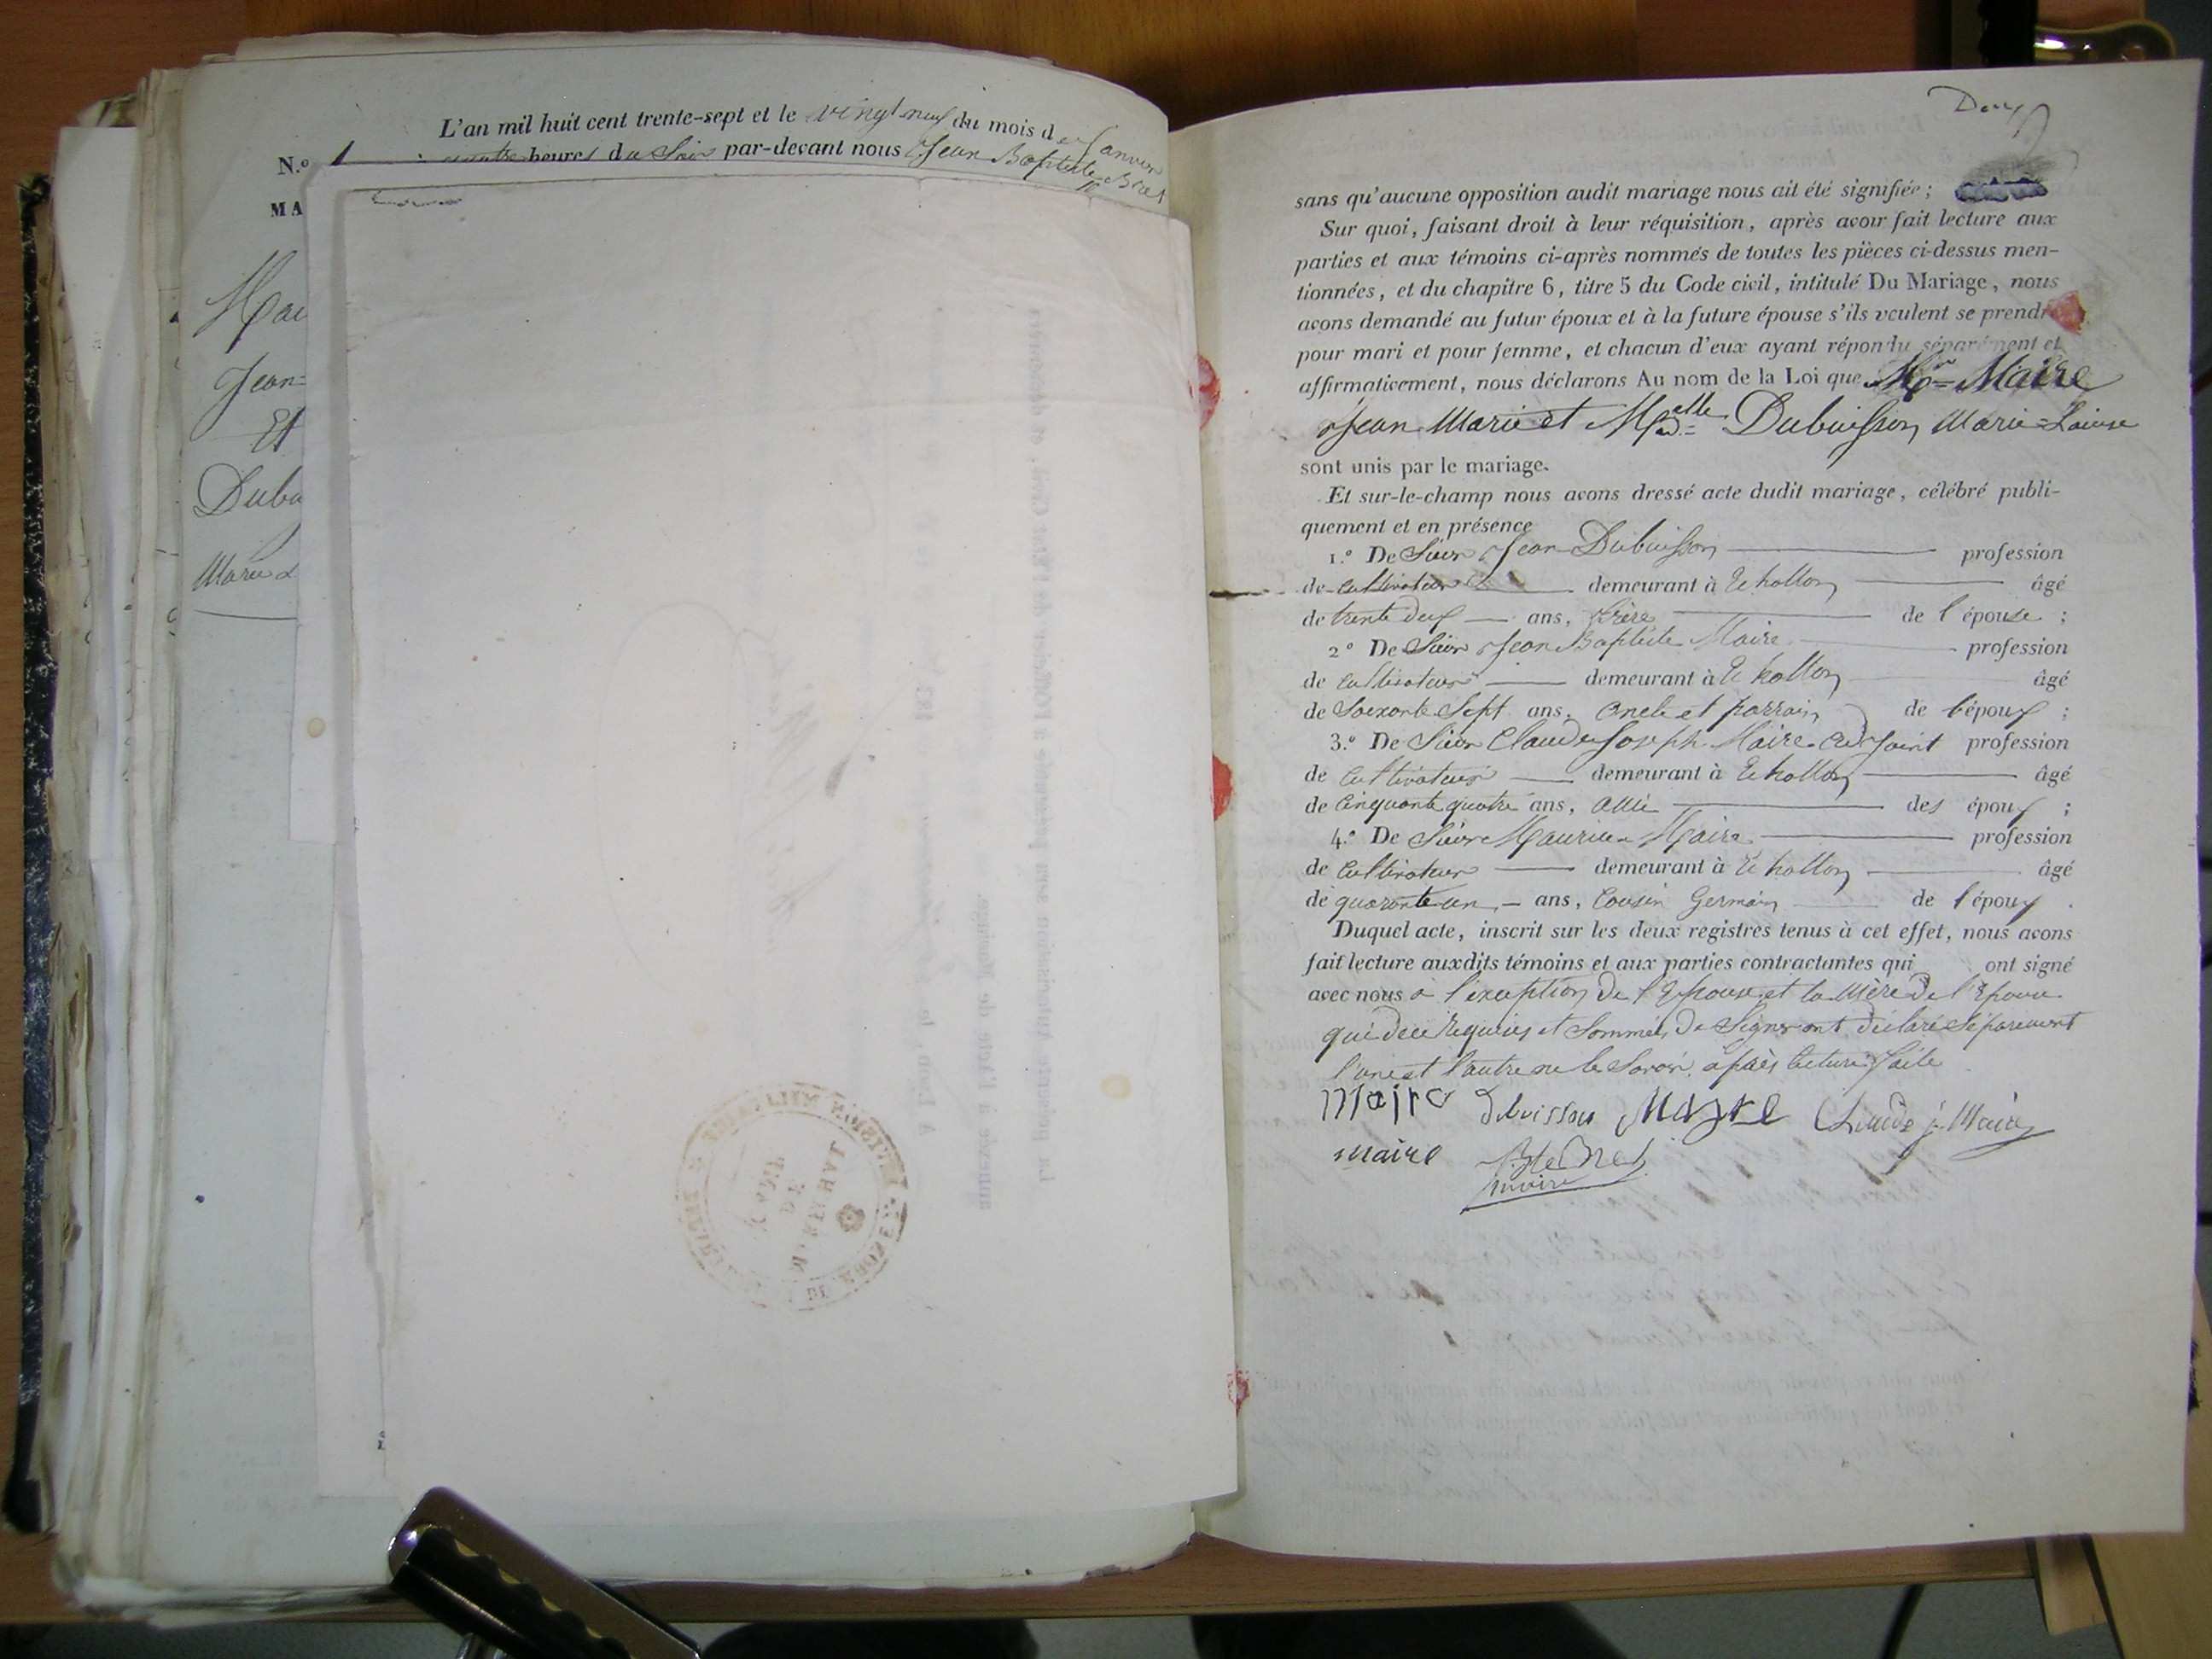 L'an mil huit cent trente-sept et le vingt neuf du mois de Janvier
N.o 1 quatre heures du Soir par-devant nous Jean Baptiste Bret
MA
Mai
Jean=
Et
Dubu
Marie L
Deux
sans qu'aucune opposition audit mariage nous ait été signifiée ;
Sur quoi, faisant droit à leur réquisition, après avoir fait lecture aux
parties et aux témoins ci-après nommés de toutes les pièces ci-dessus men-
tionnées, et du chapitre 6, titre 5 du Code civil, intitulé Du Mariage, nous
avons demandé au futur époux et à la future épouse s'ils veulent se prendre
pour mari et pour femme, et chacun d'eux ayant répondu séparément et
affirmativement, nous déclarons Au nom de la Loi que Mr= Maire
Jean Marie et Mdelle= Dubuisson Marie=Louise
sont unis par le mariage.
Et sur-le-champ nous avons dressé acte dudit mariage, célébré publi-
quement et en présence
1.o De Sieur Jean Dubuisson profession
de cultivateur demeurant à Echallon âgé
de trente deux ans, frère de l'épouse ;
2o De Sieur Jean Baptiste Maire profession
de cultivateur demeurant à Echallon âgé
de Soixante Sept ans, oncle et parrain de l'époux ;
3.o De Sieur Claude Joseph Maire adjoint profession
de Cultivateur demeurant à Echallon âgé
de Cinquante quatre ans, allié des époux ;
4.o De Sieur Maurice Maire profession
de Cultivateur demeurant à Echallon âgé
de quarante un ans, Cousin Germain de l'époux .
Duquel acte, inscrit sur les deux registres tenus à cet effet, nous avons
fait lecture auxdits témoins et aux parties contractantes qui ont signé
avec nous à l'exception de l'Epouse et la Mère de l'Epoux
qui de ce requises et Sommées de Signer ont déclaré Séparement
l'une et l'autre ne le Savoir après lecture faite
Maire Dubuisson Mayre Claude j. Maire
maire Bte Bret
maire
DE RHÔNE
MARÉCHAL
DE
CAMP